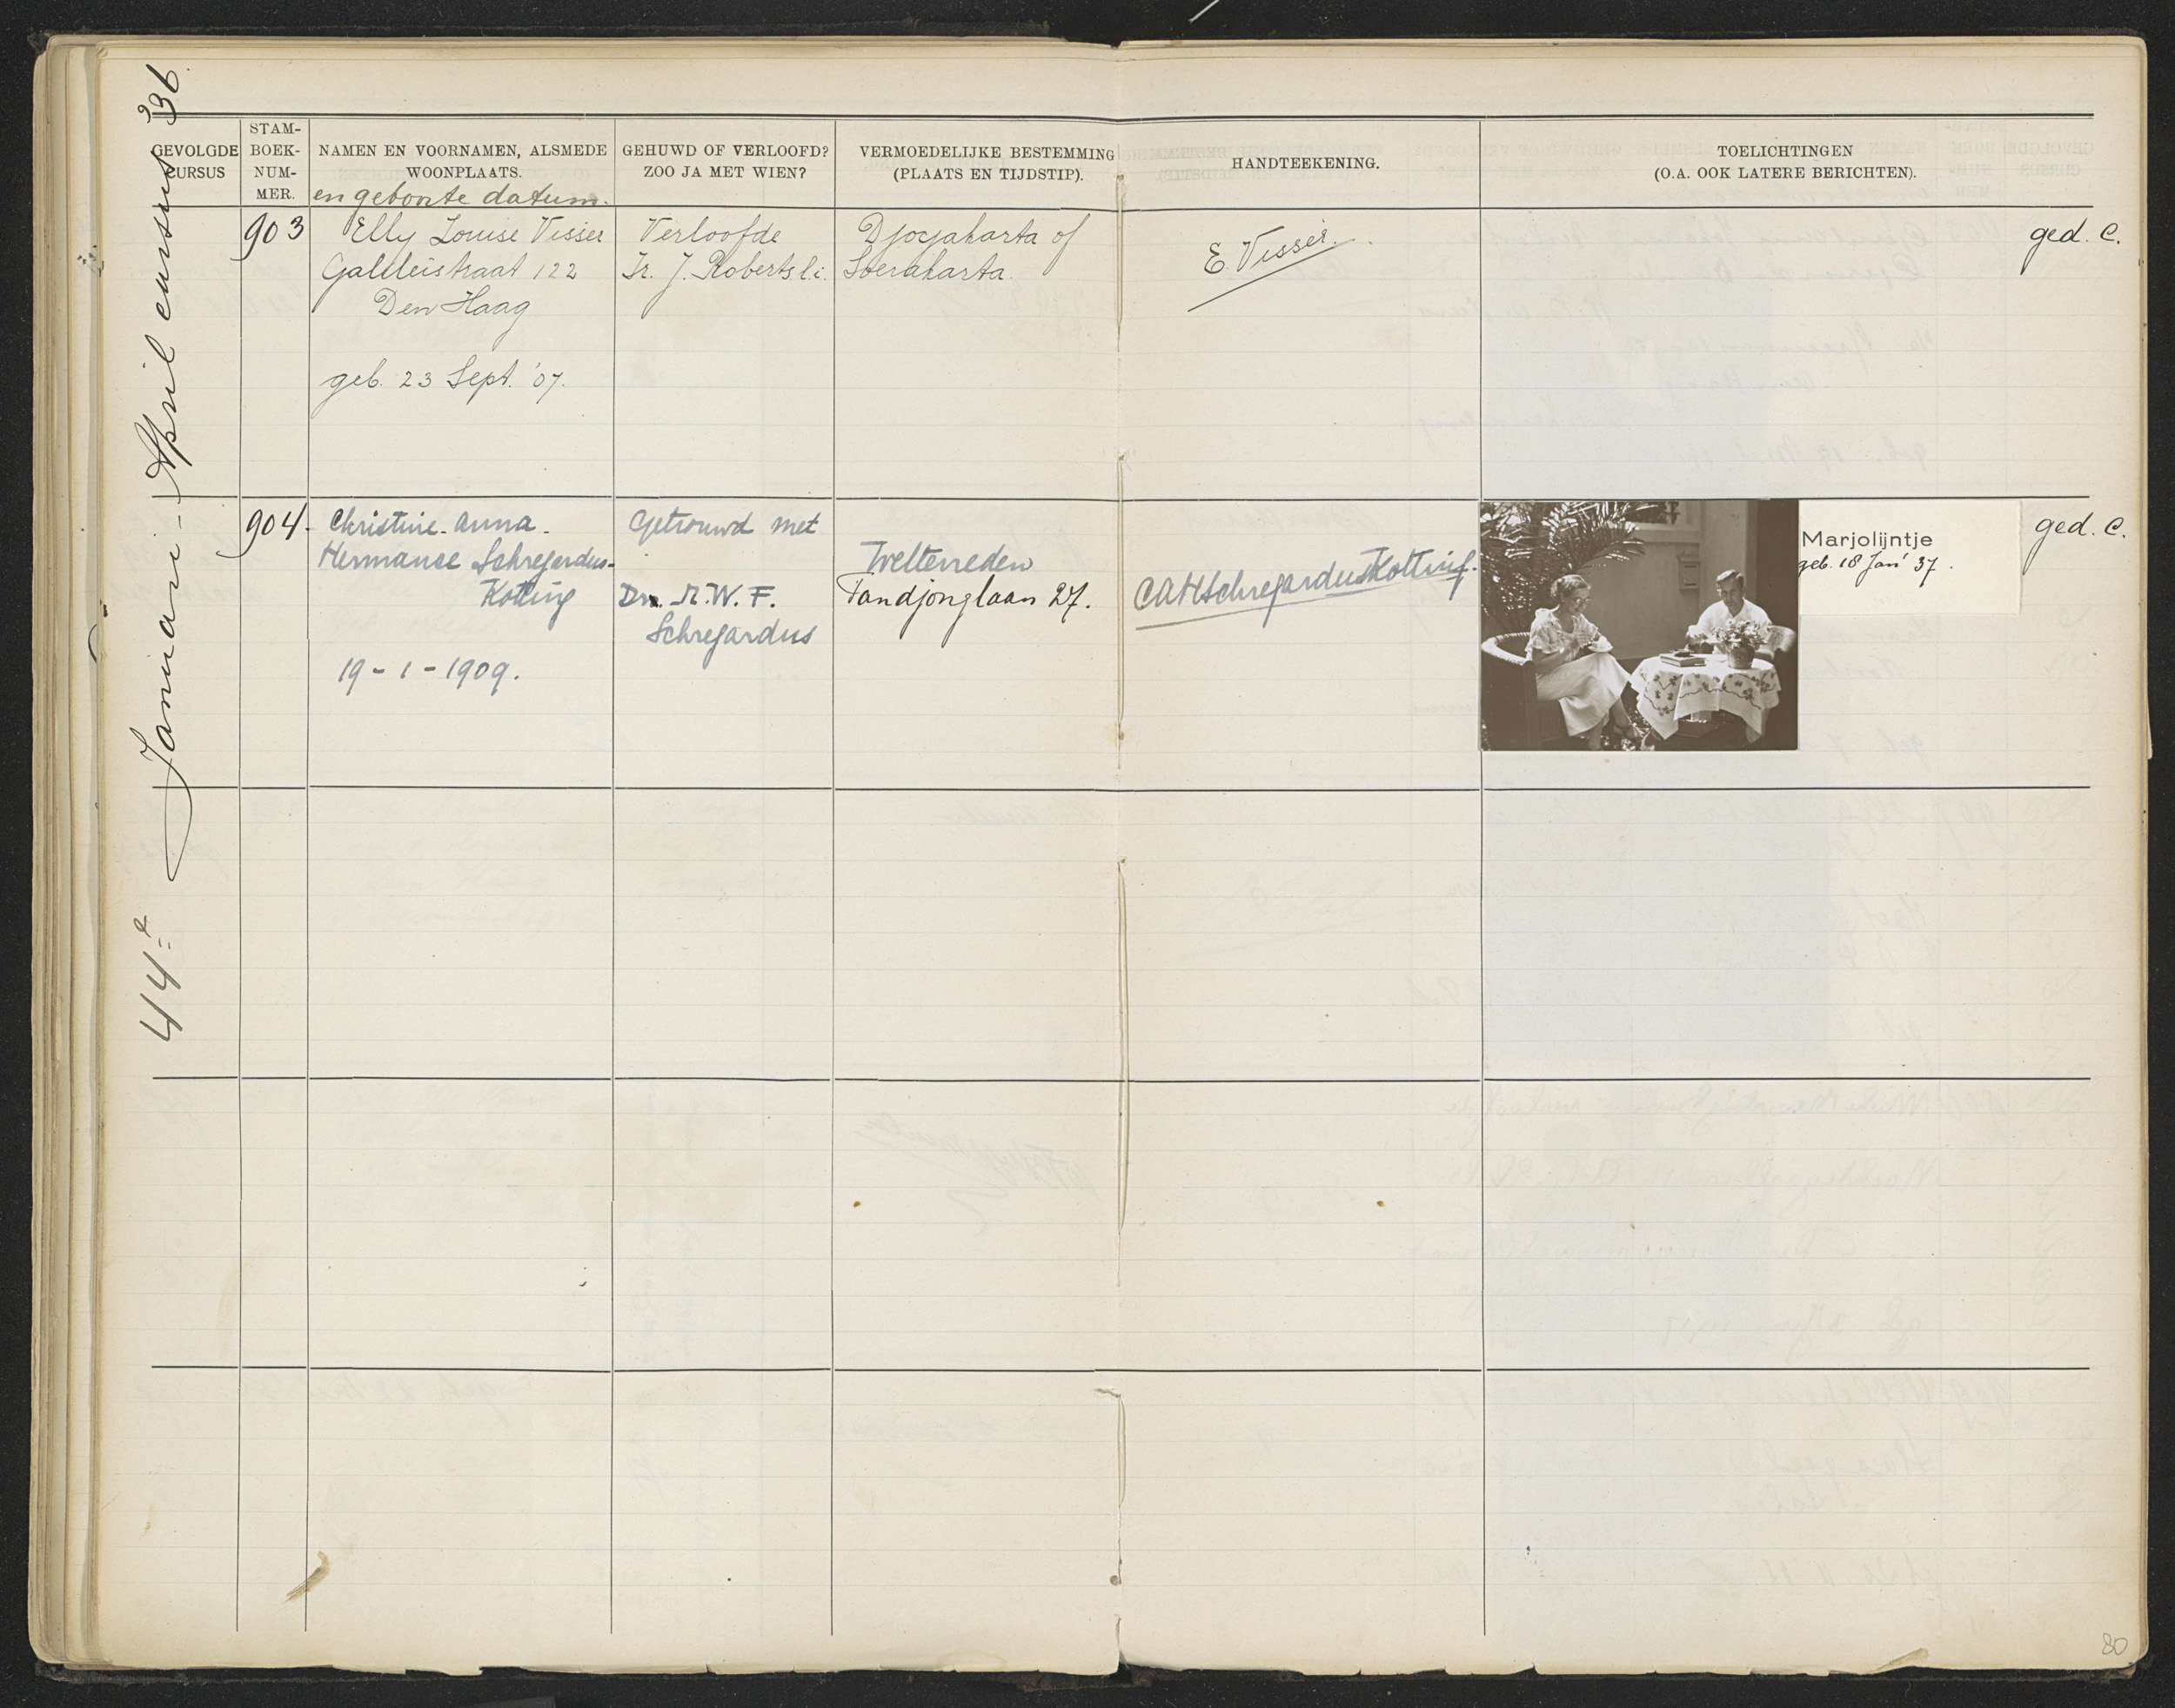 44e Januari - April cursus '36
GEVOLGDE CURSUS
STAM-
BOEK-
NUM-
MER.
NAMEN EN VOORNAMEN, ALSMEDE
WOONPLAATS.
en geboorte datum.
GEHUWD OF VERLOOFD?
ZOO JA MET WIEN?
VERMOEDELIJKE BESTEMMING
(PLAATS EN TIJDSTIP).
HANDTEEKENING.
TOELICHTINGEN
(O.A. OOK LATERE BERICHTEN).
903
Elly Louise Visser
Galileistraat 122
Den Haag
geb. 23 Sept. '07.
Verloofde
Ir. J. Roberts l.i.
Djocjakarta of
Soerakarta.
E. Visser.
ged. C.
904.
Christine Anna
Hermanse Schregardus-
Kotting
19-1-1909.
Getrouwd met
Dr. R.W.F.
Schregardus
Weltevreden
Tandjonglaan 27.
CAHSchregardusKotting.
Marjolijntje
geb. 18 Jan' 37.
ged. C.
80